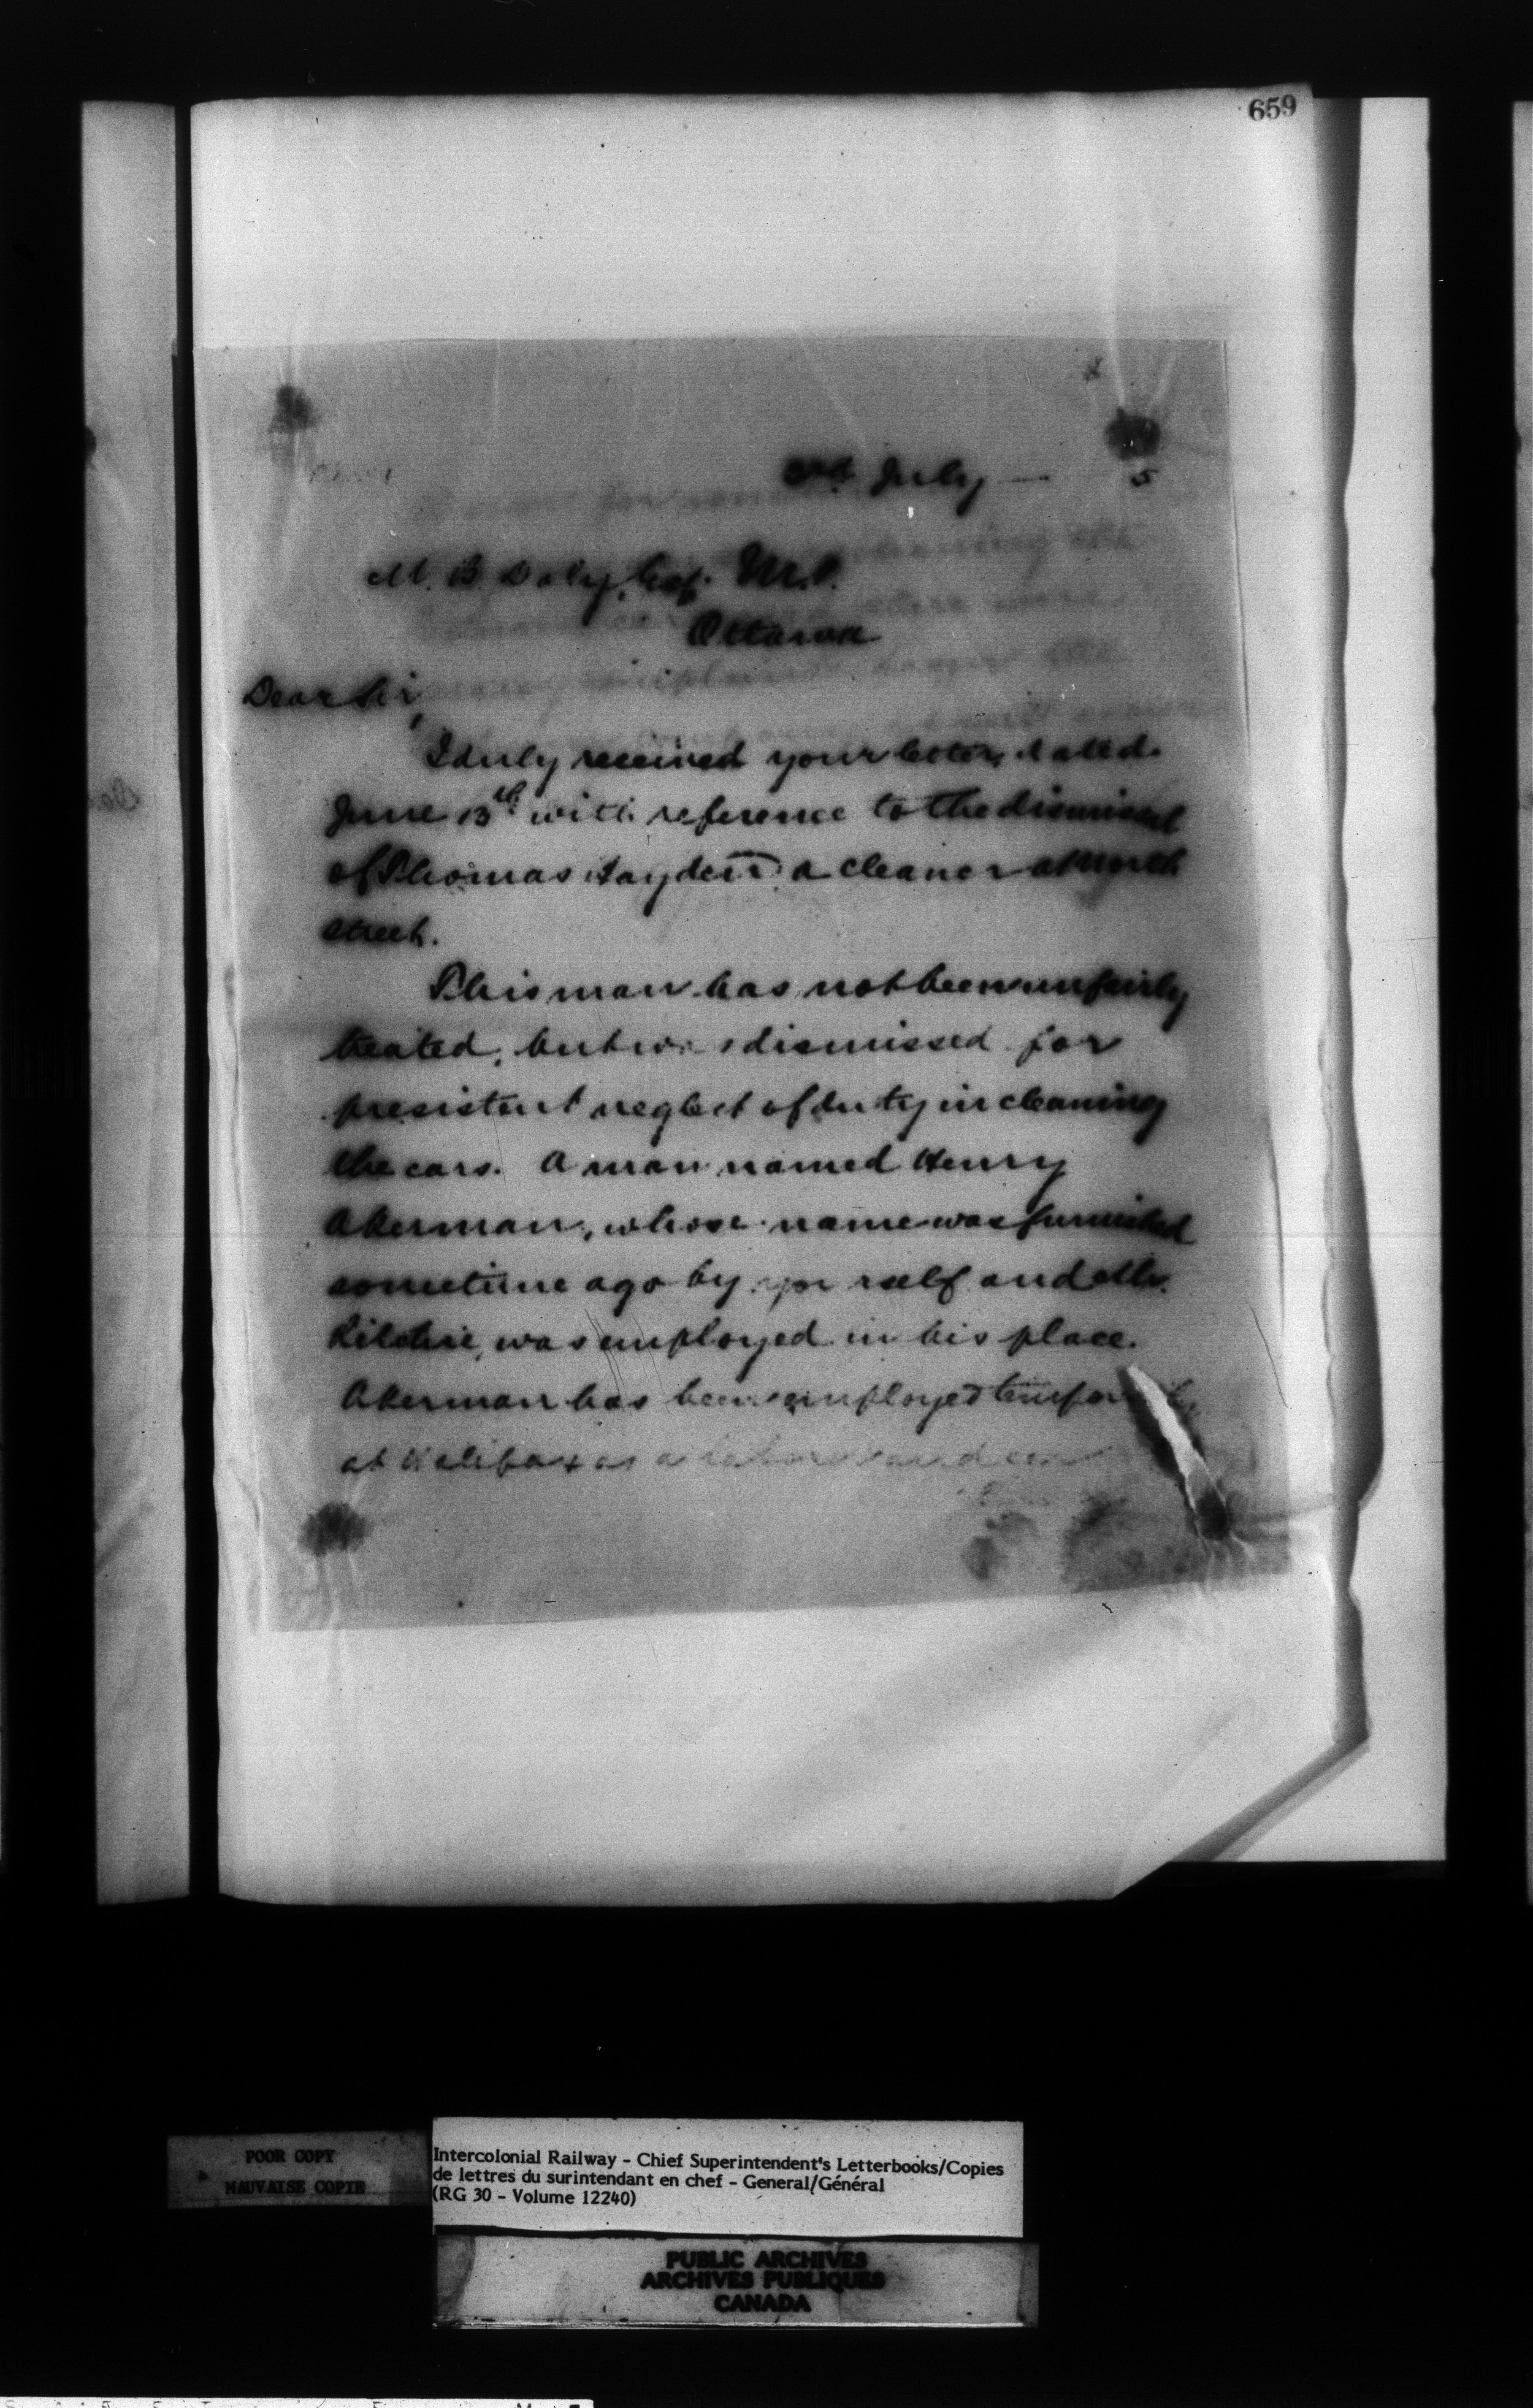 659
3rd July — 5
M. B. Daly, Esq. M.P.
Ottawa
Dear Sir,
I duly received your letter dated
June 13th with reference to the dismissal
of Thomas Hayden a cleaner at North
Street.
This man has not been unfairly
treated, but was dismissed for
presistent neglect of duty in cleaning
the cars. A man named Henry
Akerman, whose name was furnished
sometime ago by yourself and Mr.
Ritchie, was employed in his place.
Akerman has been employed
at Halifax as a
POOR COPY
MAUVAISE COPIE
Intercolonial Railway - Chief Superintendent's Letterbooks/Copies
de lettres du surintendant en chef - General/Général
(RG 30 - Volume 12240)
PUBLIC ARCHIVES
ARCHIVES PUBLIQUES
CANADA